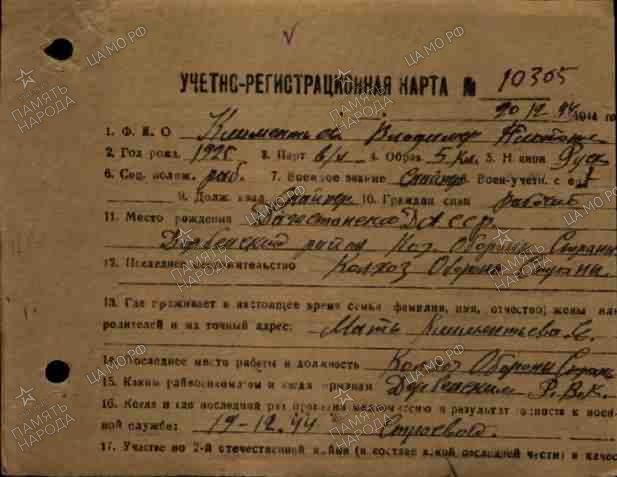 УЧЕТНО-РЕГИСТРАЦИОННАЯ КАРТА № 10305
20 12 44 1944 го
1. Ф. И. О Климентьев Владимир
2. Год рожд. 1925 3. Парт б/п 4. Образ 5 кл. 5. Национ Русс
6. Соц. полож. раб. 7. Военное звание 8. Воен-учетн. с
9. Долж. квал Снайпер 10. Граждан спец рабочий
11. Место рождения Дагестанской АССР
Дербенский район Кол. Оборона Страны
12. Последнее местожительство Колхоз Оборона Страны.
13. Где проживает в настоящее время семья фамилия, имя, отчество; жены или
родителей и их точный адрес: Мать Климентьева С.
14. Последнее место работы и должность Колхоз Оборона Страны
15. Каким райвоенкоматом и когда призван Дербенским Р.В.К.
16. Когда и где последний раз проходил медкомиссию и результат годности к воен-
ной службе: 19-12.44 Строевой.
17. Участие во 2-й отечественной войне (в составе какой последней части) в качес
ЦАМО.РФ
ПАМЯТЬ НАРОДА